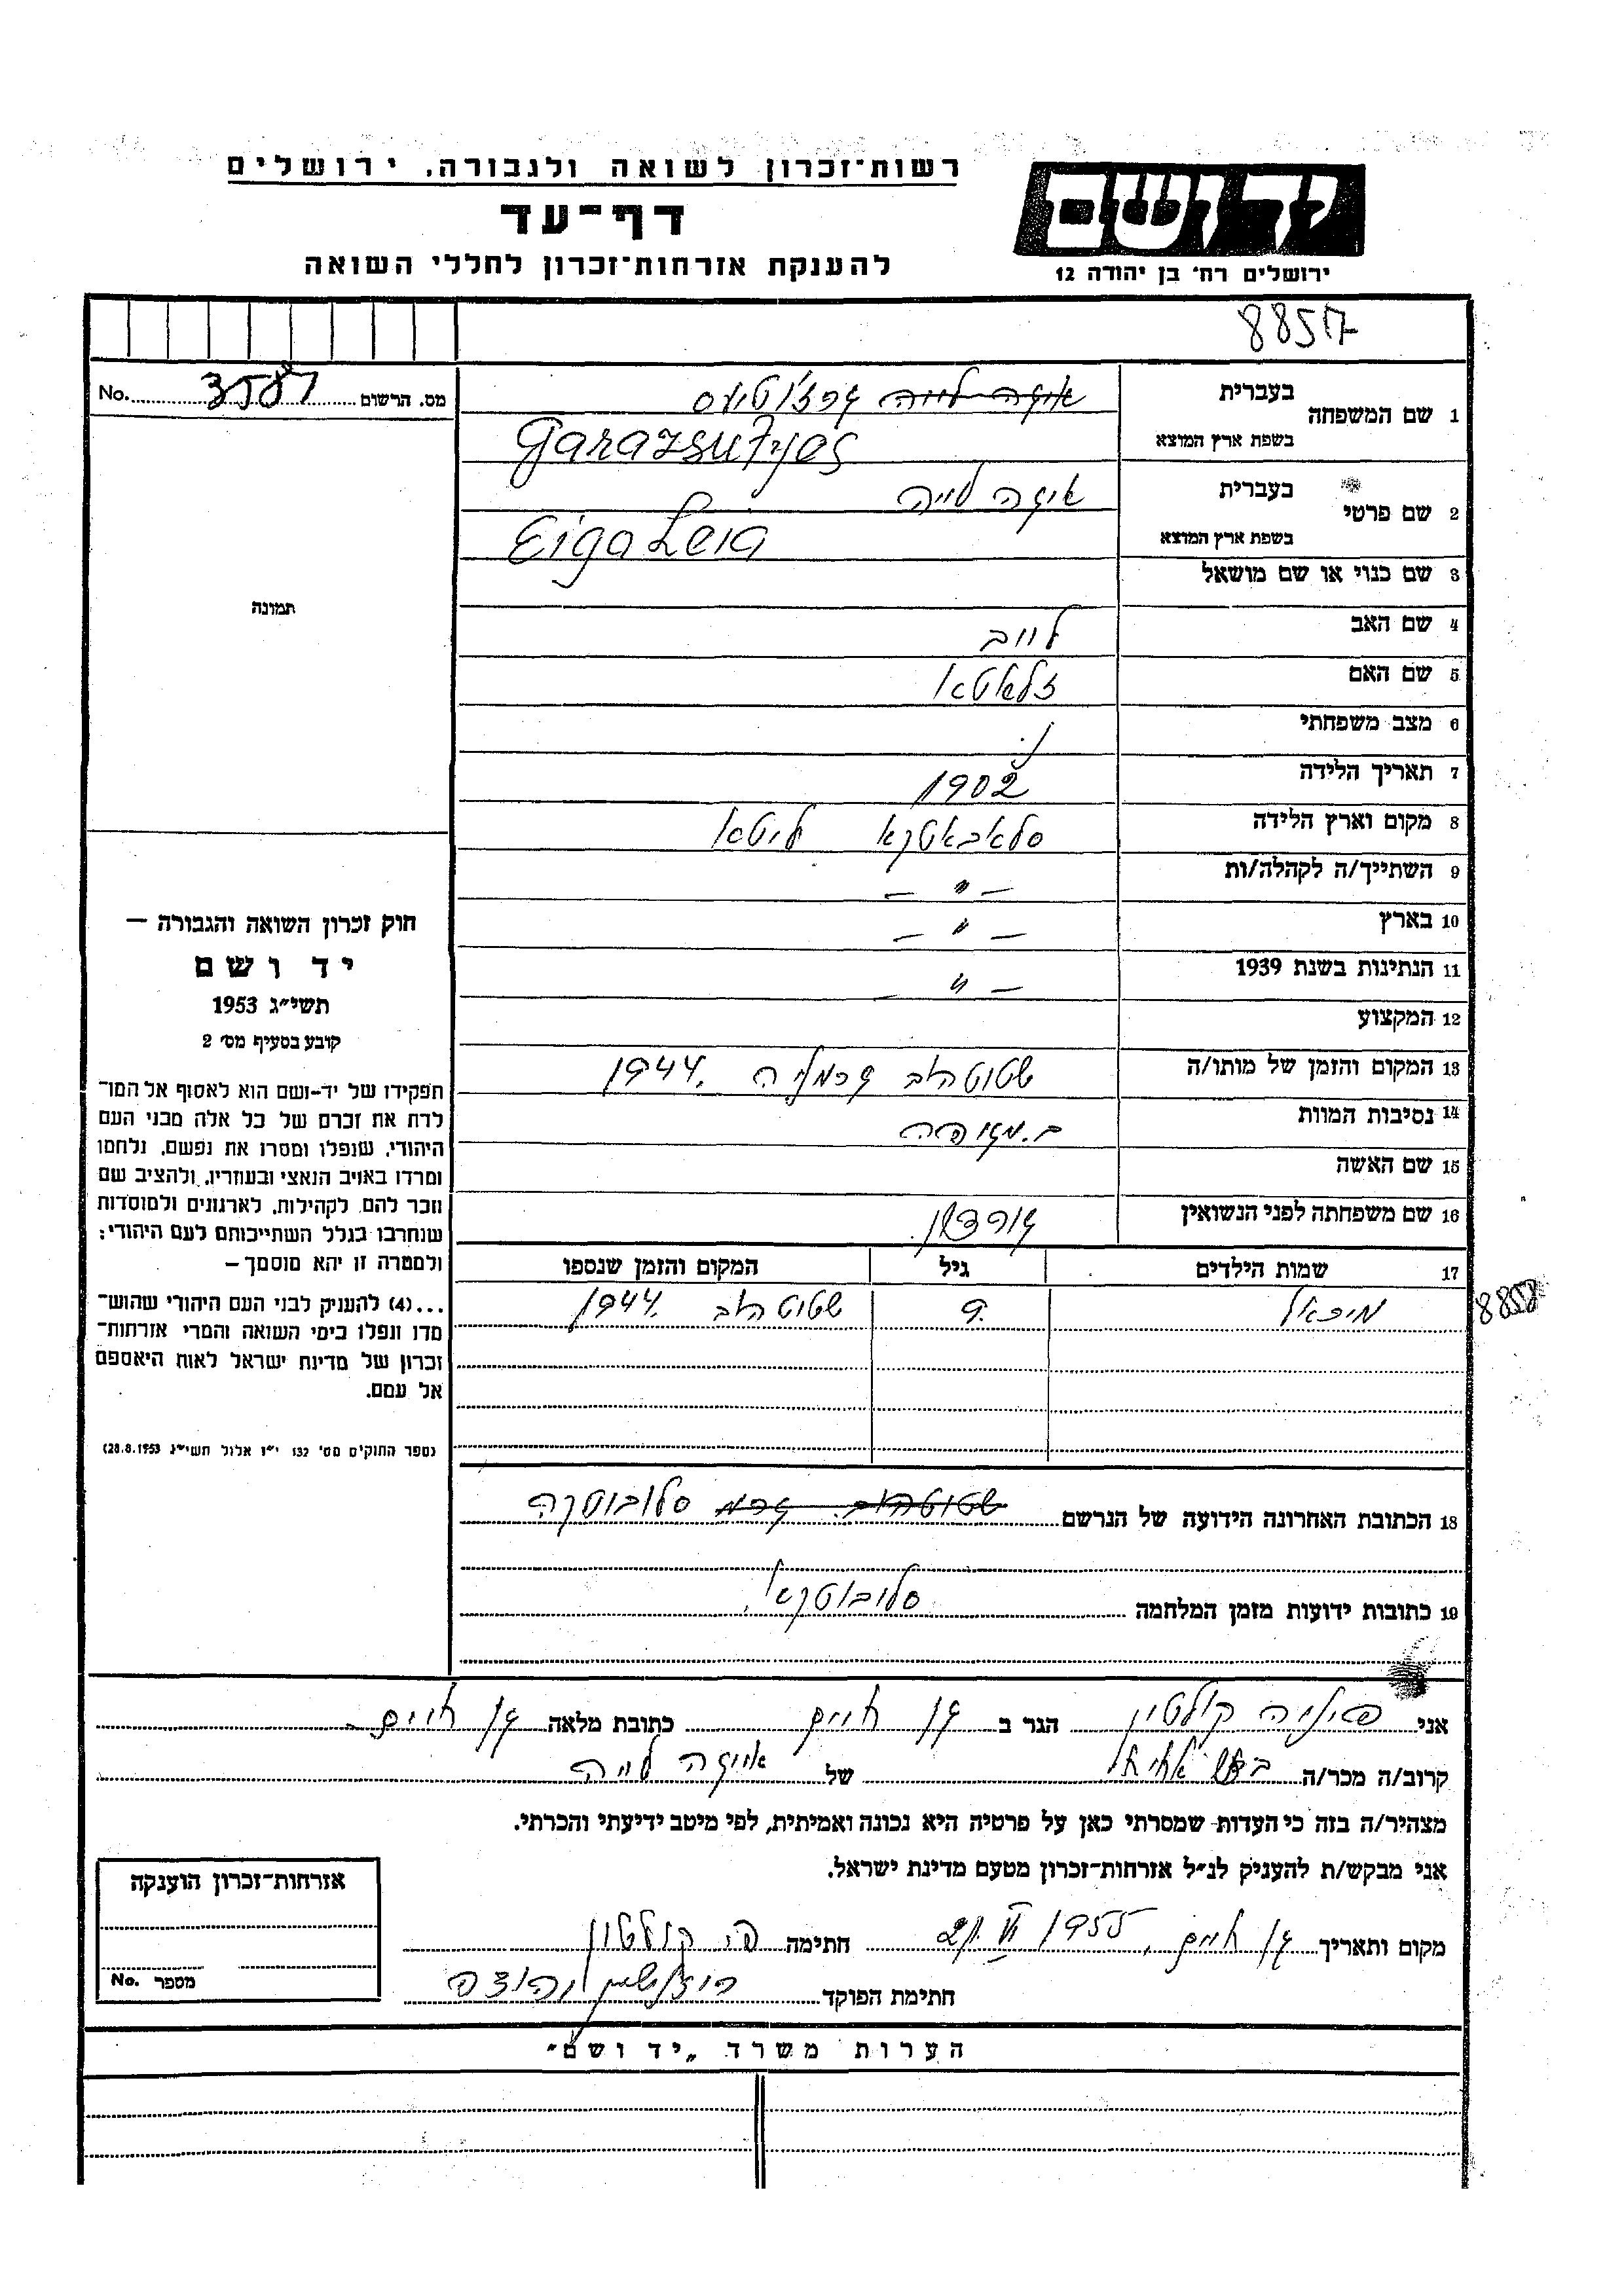 רשות־זכרון לשואה ולגבורה, ירושלים
דף־עד
להענקת אזרחות־זכרון לחללי השואה
ידושם
ירושלים רח' בן יהודה 12
8857
מס. הרשום No.
1 שם המשפחה
בעברית
איגה לייה גרז'וטיעס
בשפת ארץ המוצא
Garazsutyes
2 שם פרטי
בעברית
איגה לייה
בשפת ארץ המוצא
Eiga Leia
3 שם כנוי או שם מושאל
4 שם האב לייב
5 שם האם זלאטא
6 מצב משפחתי נ.
7 תאריך הלידה 1902
8 מקום וארץ הלידה סלאבאטקא ליטא
9 השתייך/ה לקהלה/ות — " —
10 בארץ — " —
11 הנתינות בשנת 1939 — " —
12 המקצוע
13 המקום והזמן של מותו/ה שטוטהוב גרמניה 1944.
14 נסיבות המוות
15 שם האשה
16 שם משפחתה לפני הנשואין גורדון.
17 שמות הילדים גיל המקום והזמן שנספו
מיכאל 9. שטוטהוב 1944.
18 הכתובת האחרונה הידועה של הנרשם שטוטהוב. גרמ סלובוטקה
19 כתובות ידועות מזמן המלחמה סלובוטקא.
תמונה
חוק זכרון השואה והגבורה —
יד ושם
תשי״ג 1953
קובע בסעיף מס' 2
תפקידו של יד-ושם הוא לאסוף אל המו־
לדת את זכרם של כל אלה מבני העם
היהודי, שנפלו ומסרו את נפשם, נלחמו
ומרדו באויב הנאצי ובעוזריו, ולהציב שם
וזכר להם לקהילות, לארגונים ולמוסדות
שנחרבו בגלל השתייכותם לעם היהודי;
ולמטרה זו יהא מוסמך —
...(4) להעניק לבני העם היהודי שהוש־
מדו ונפלו בימי השואה והמרי אזרחות־
זכרון של מדינת ישראל לאות היאספם
אל עמם.
(ספר החוקים מס' 132 י״ז אלול תשי״ג 28.8.1953)
אני פניה קולטין הגר ב גן חיים כתובת מלאה גן חיים
קרוב/ה מכר/ה של אייגה לייה
מצהיר/ה בזה כי העדות שמסרתי כאן על פרטיה היא נכונה ואמיתית, לפי מיטב ידיעתי והכרתי.
אני מבקש/ת להעניק לנ״ל אזרחות־זכרון מטעם מדינת ישראל.
מקום ותאריך גן חיים, 21. VI 1955 חתימה פ. קולטון
חתימת הפוקד
אזרחות־זכרון הוענקה
מספר No.
הערות משרד „יד ושם״